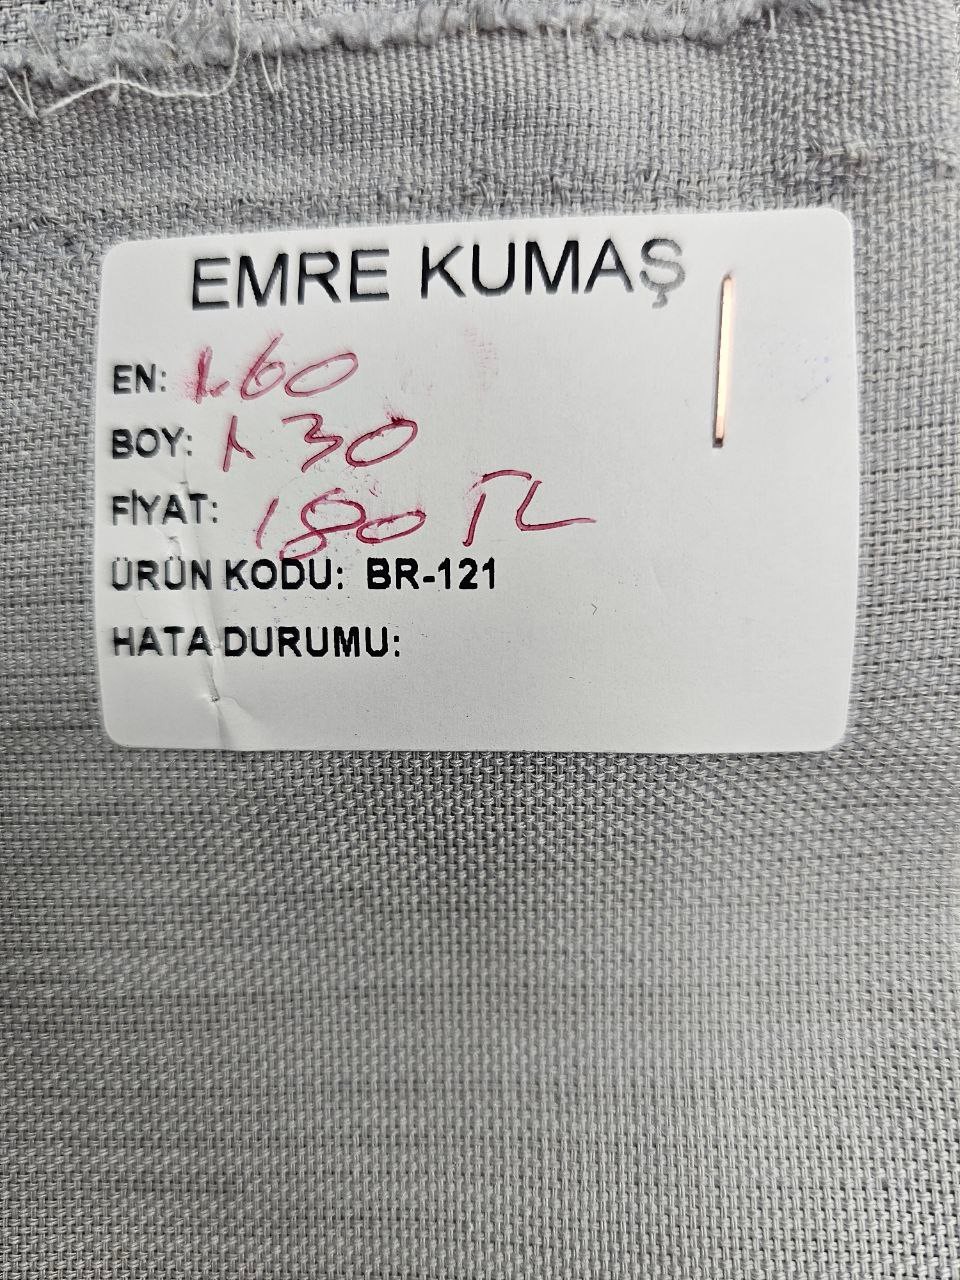 EMRE KUMAŞ
EN: 1.60
BOY: 1.30
FİYAT: 180 TL
ÜRÜN KODU: BR-121
HATA DURUMU: